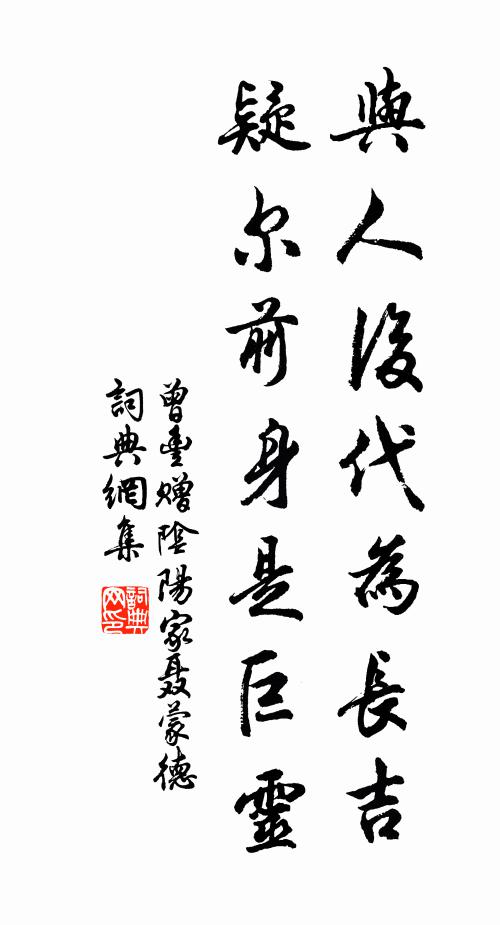 與人後代為長吉
疑尔前身是巨靈
曾豐贈陰陽家聂蒙德
詞典網集
詞典网印